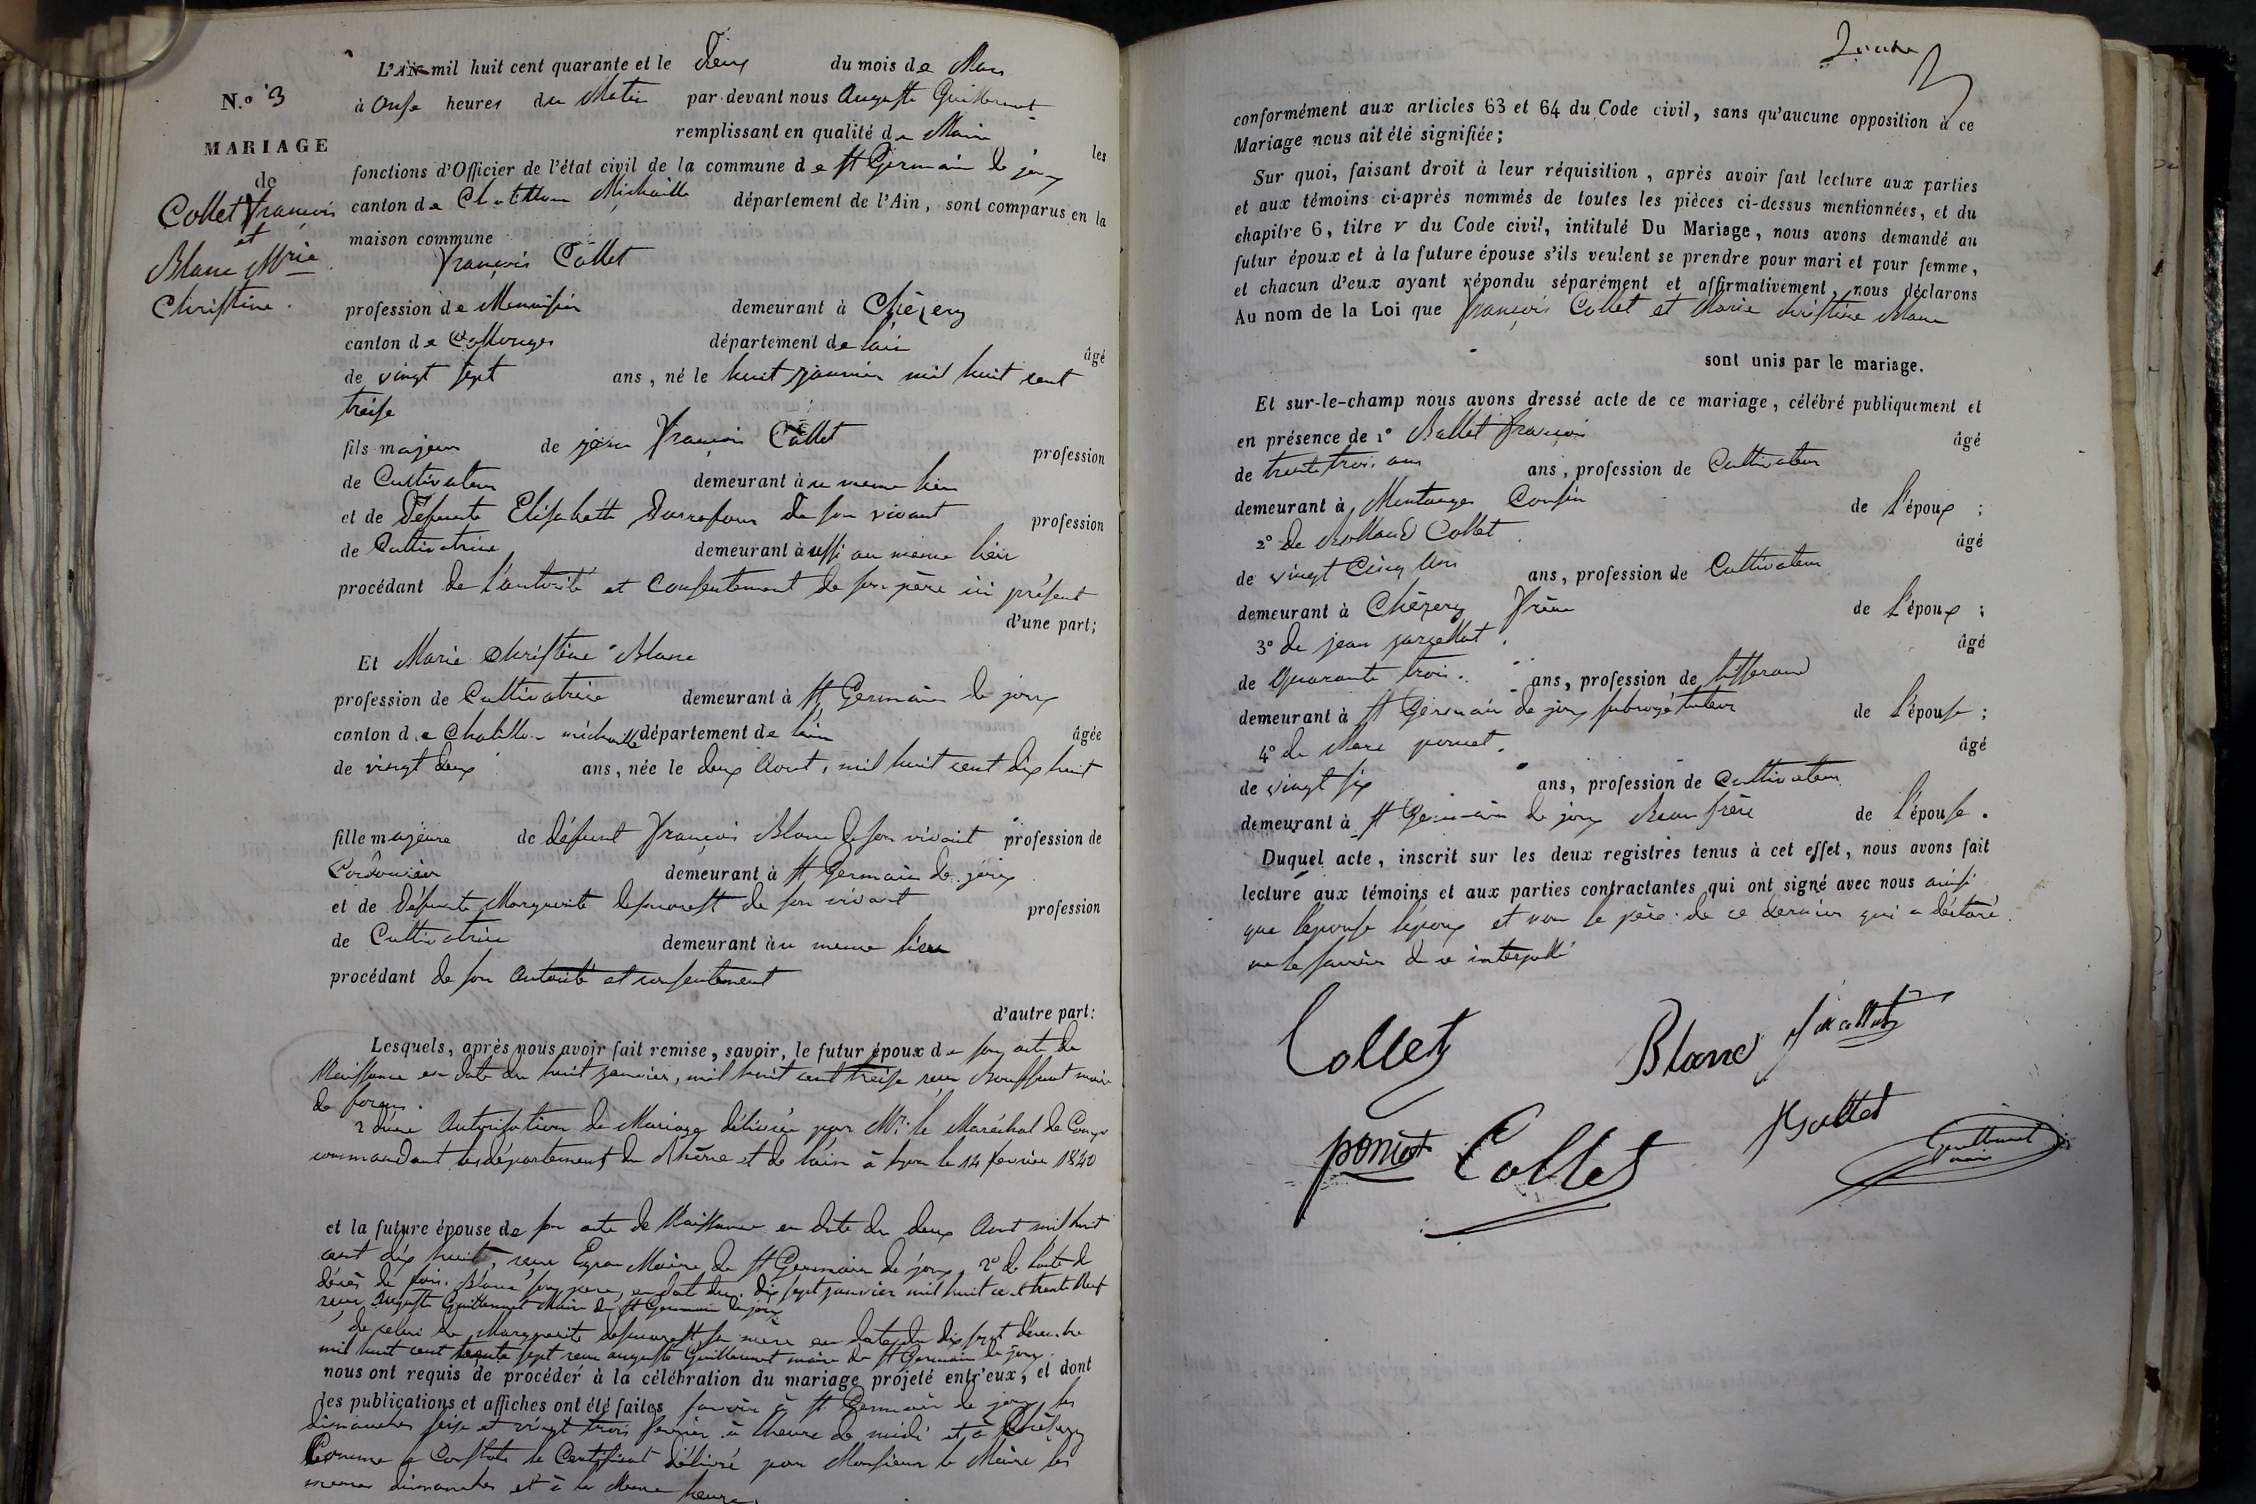 N.o 3
MARIAGE
de
Collet François
et
Blanc Marie
Christine.
L'AN mil huit cent quarante et le deux du mois de Mars
à onse heures du Matin par-devant nous Auguste Guillermet
remplissant en qualité de Maire les
fonctions d'Officier de l'état civil de la commune de St Germain de joux
canton de Chatillon Michaille département de l'Ain, sont comparus en la
maison commune
François Collet
profession de Menuisier demeurant à Chézery
canton de Collonges département de l'ain âgé
de vingt sept ans, né le huit janvier mil huit cent
treise
fils majeur de jean François Collet profession
de Cultivateur demeurant à u meme lieu
et de Défunte Elisabeth de son vivant profession
de Cultivatrice demeurant à ussi au meme lieu
procédant de l'autorité et consentement de son père ici présent
d'une part;
Et Marie Christine Blanc
profession de Cultivatrice demeurant à St Germain de joux
canton de Chatillon michaille département de l'ain âgée
de vingt deux ans, née le deux Aout, mil huit cent dix huit
fille majeure de défunt François Blanc de son vivant profession de
Cordonnier demeurant à St Germain de joux
et de Défunte Marguerite de son vivant profession
de Cultivatrice demeurant à u meme lieu
procédant de son autorité et consentement
d'autre part:
Lesquels, après nous avoir fait remise, savoir, le futur époux de son acte de
Naissance en date du huit janvier, mil huit cent treise maire
de
Autorisation de Mariage délivrée par Mr. le Maréchal de Camp
commandant les département du Rhône et de l'ain à Lyon le 14 fevrier 1840
et la future épouse de son acte de Naissance en date du deux Aout mil huit
cent dix huit, Maire de St Germain de joux, 2o de l'acte de
décès de Blanc son père, en date du dix sept janvier mil huit cent trente Neuf
Auguste Guillermet Maire de St Germain de joux
de celui de Marguerite sa mère en date du dix sept décembre
mil huit cent trente sept auguste Guillermet maire de St Germain de joux.
nous ont requis de procéder à la célébration du mariage projeté entr'eux, et dont
les publications et affiches ont été faites savoir à St Germain de joux les
dimanches seise et vingt trois fevrier à l'heure de midi et à Chézery
Comme le Constate le Certificat délivré par Monsieur le Maire les
memes dimanches et à la Meme heure.
conformément aux articles 63 et 64 du Code civil, sans qu'aucune opposition à ce
Mariage nous ait été signifiée;
Sur quoi, faisant droit à leur réquisition, après avoir fait lecture aux parties
et aux témoins ci-après nommés de toutes les pièces ci-dessus mentionnées, et du
chapitre 6, titre v du Code civil, intitulé Du Mariage, nous avons demandé au
futur époux et à la future épouse s'ils veulent se prendre pour mari et pour femme,
et chacun d'eux ayant répondu séparément et affirmativement, nous déclarons
Au nom de la Loi que François Collet et Marie christine Blanc
sont unis par le mariage.
Et sur-le-champ nous avons dressé acte de ce mariage, célébré publiquement et
en présence de 1o Ballet François âgé
de trente trois ans ans, profession de Cultivateur
demeurant à Montanges Cousin de l'époux;
2o de Rolland Collet âgé
de vingt Cinq ans ans, profession de Cultivateur
demeurant à Chézery Frère de l'époux;
3o de jean âgé
de Quarante trois. ans, profession de tisserand
demeurant à St Germain de joux subrogé tuteur de l'épouse;
4o de Marc poncet. âgé
de vingt six ans, profession de Cultivateur
demeurant à St Germain de joux Beau frère de l'épouse.
Duquel acte, inscrit sur les deux registres tenus à cet effet, nous avons fait
lecture aux témoins et aux parties contractantes qui ont signé avec nous ainsi
que l'épouse l'époux et non le père de ce dernier qui a déclaré
ne le savoir de ce interpellé
Collet Blanc
poncet Collet Ballet Guillermet
maire